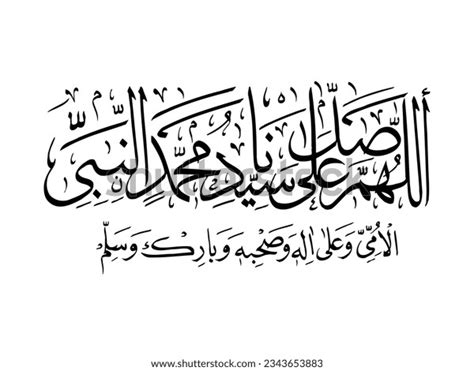 أللهم صل على سيدنا محمد النبي
الأمي وعلى اله وصحبه وبارك وسلم
shutterstock
www.shutterstock.com · 2343653883